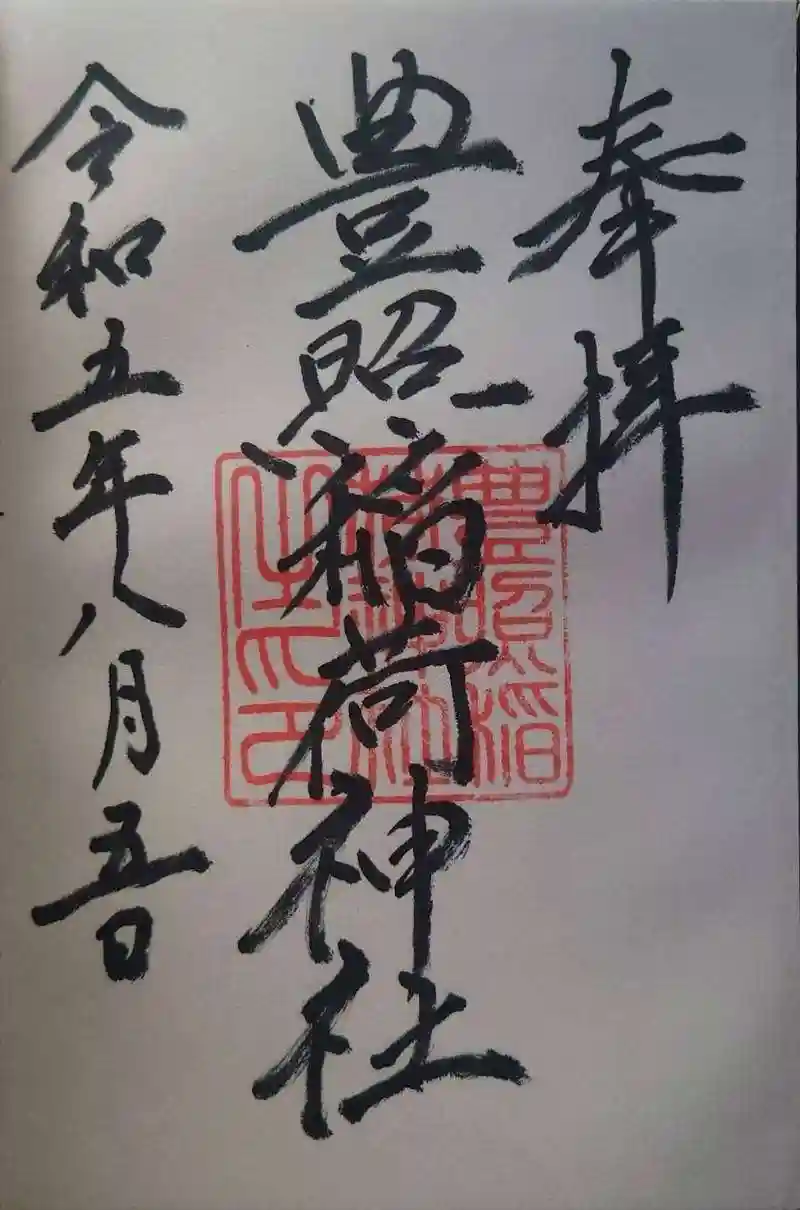 奉拝
豊照稲荷神社
令和五年八月五日